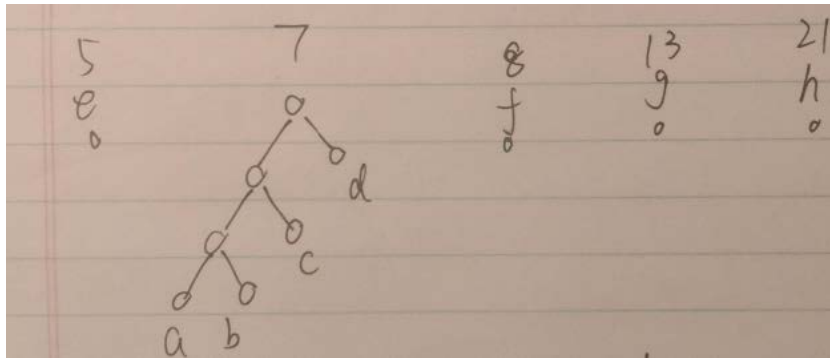 5 7 8 13 21
e f g h
d
c
a b